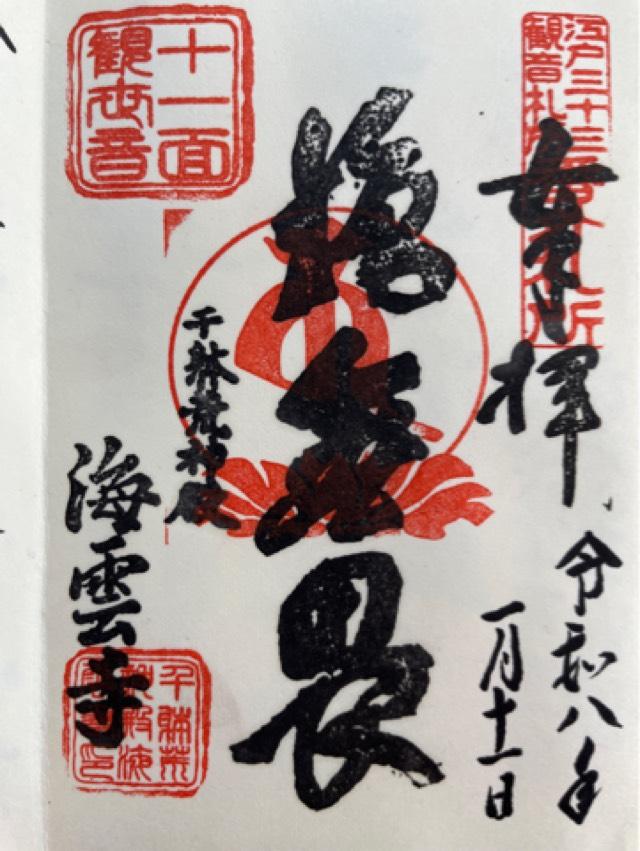 江戸三十三
観音札所
奉拝
令和八年
一月十一日
施無畏
十一面
観世音
千躰荒神殿
海雲寺
千躰荒
神殿海